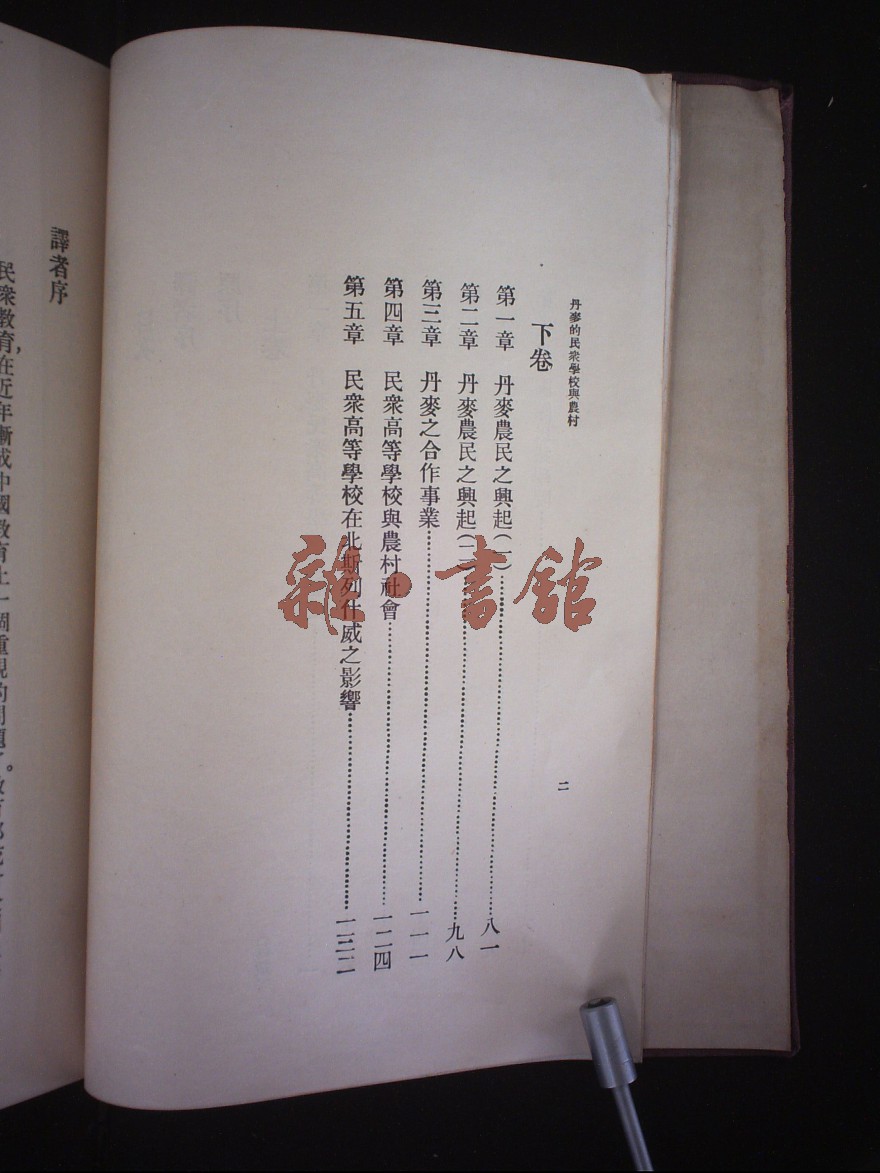 丹麥的民衆學校與農村
二
下卷
第一章 丹麥農民之興起(一)……八一
第二章 丹麥農民之興起(二)……九八
第三章 丹麥之合作事業……一一一
第四章 民衆高等學校與農村社會……一二四
第五章 民衆高等學校在北斯列什威之影響……一三二
雜·書館
譯者序
民衆教育,在近年漸成中國教育上一個重視的問題了。